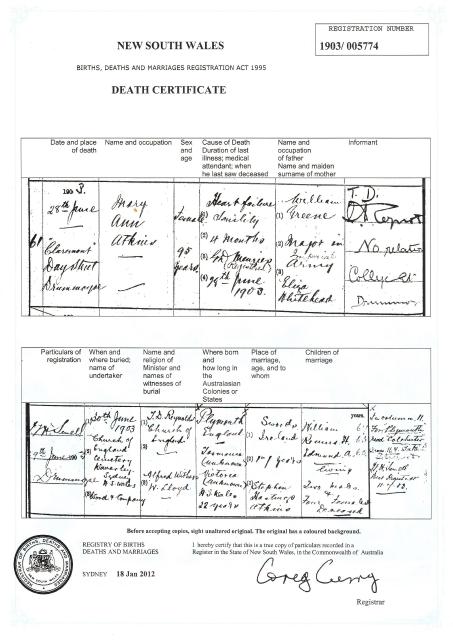 REGISTRATION NUMBER
NEW SOUTH WALES
1903/ 005774
BIRTHS, DEATHS AND MARRIAGES REGISTRATION ACT 1995
DEATH CERTIFICATE
Date and place of death
Name and occupation
Sex and age
Cause of Death
Duration of last illness; medical attendant; when he last saw deceased
Name and occupation of father
Name and maiden surname of mother
Informant
1903.
28th June
"Claremont"
Day Street
Drummoyne
Mary
Ann
Atkins
Female
95
years
Heart failure
(1) Senility
(2) 4 months
(3)
(Registered)
(4) 28th June
1903.
William
(1) Greene
(2) Major in
Imperial
Army
(3)
Eliza
Whitehead
No relation
College St
Drummoyne
Particulars of registration
When and where buried; name of undertaker
Name and religion of Minister and names of witnesses of burial
Where born and how long in the Australasian Colonies or States
Place of marriage, age, and to whom
Children of marriage
Drummoyne
30th June
1903
Church of
England
Cemetery
Waverley
Sydney
N.S. Wales
Wood & Company
T.D. Reynolds
Church of
England
Alfred
W. Lloyd
Plymouth
England
Tasmania
(unknown)
Victoria
(unknown)
N.S. Wales
22 years
Ireland
years
Stephen
Hastings
Atkins
years.
William
Edmund A.
living
Two males &
Four females
Deceased
In column 11.
For Plymouth
read Colchester
Before accepting copies, sight unaltered original. The original has a coloured background.
REGISTRY OF BIRTHS
DEATHS AND MARRIAGES
I hereby certify that this is a true copy of particulars recorded in a
Register in the State of New South Wales, in the Commonwealth of Australia
SYDNEY 18 Jan 2012
Greg Curry
Registrar